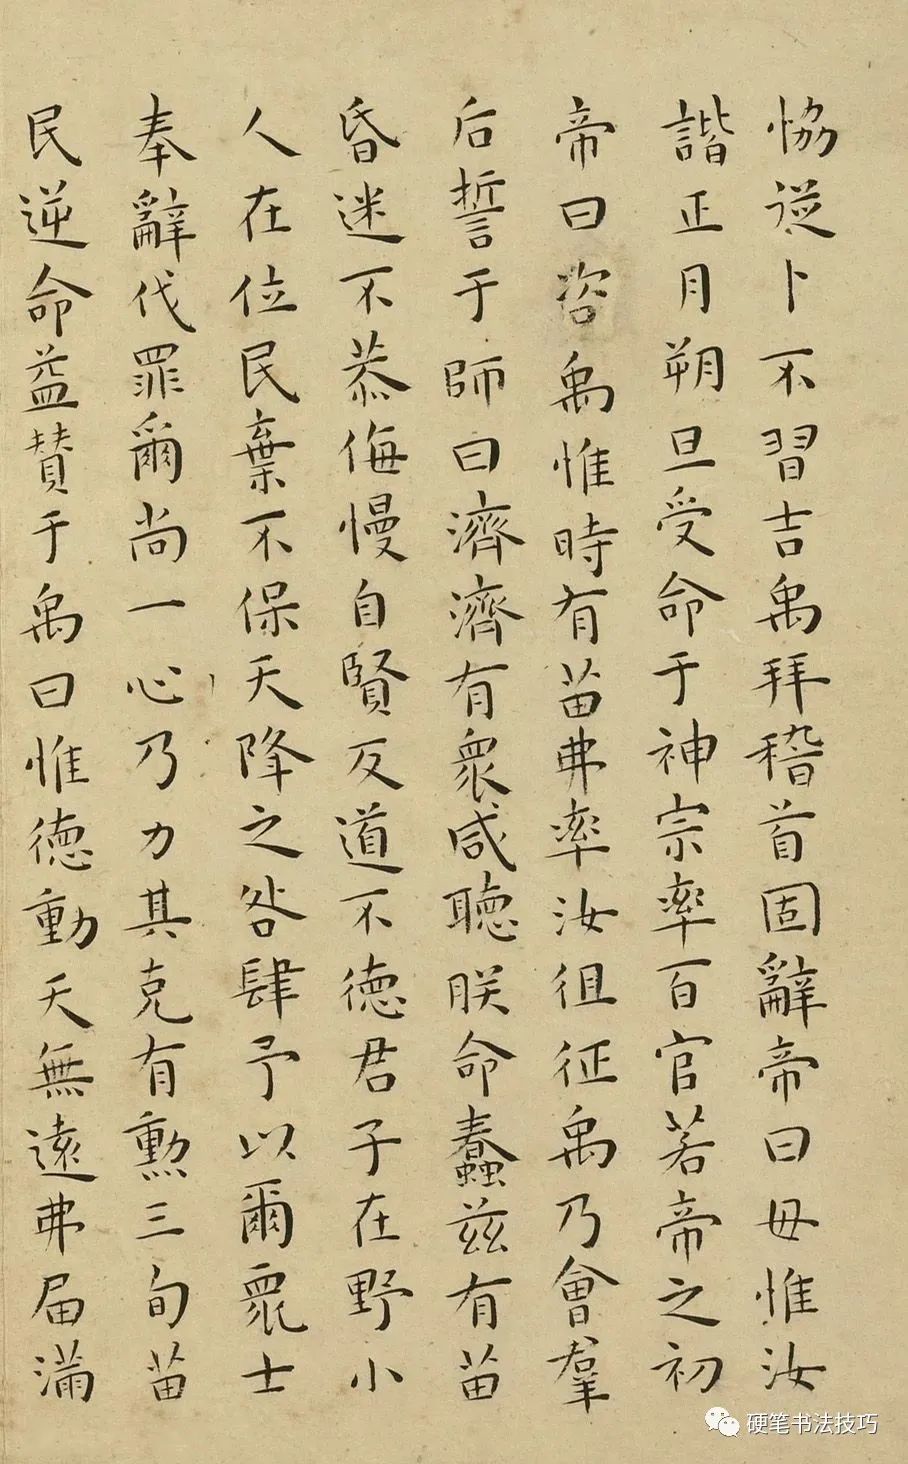 恊從卜不習吉禹拜稽首固辭帝曰毋惟汝
諧正月朔旦受命于神宗率百官若帝之初
帝曰咨禹惟時有苗弗率汝徂征禹乃會羣
后誓于師曰濟濟有衆咸聽朕命蠢茲有苗
昏迷不恭侮慢自賢反道不德君子在野小
人在位民棄不保天降之咎肆予以爾衆士
奉辭伐罪爾尚一心乃力其克有勲三旬苗
民逆命益贊于禹曰惟德動天無遠弗届滿
硬笔书法技巧